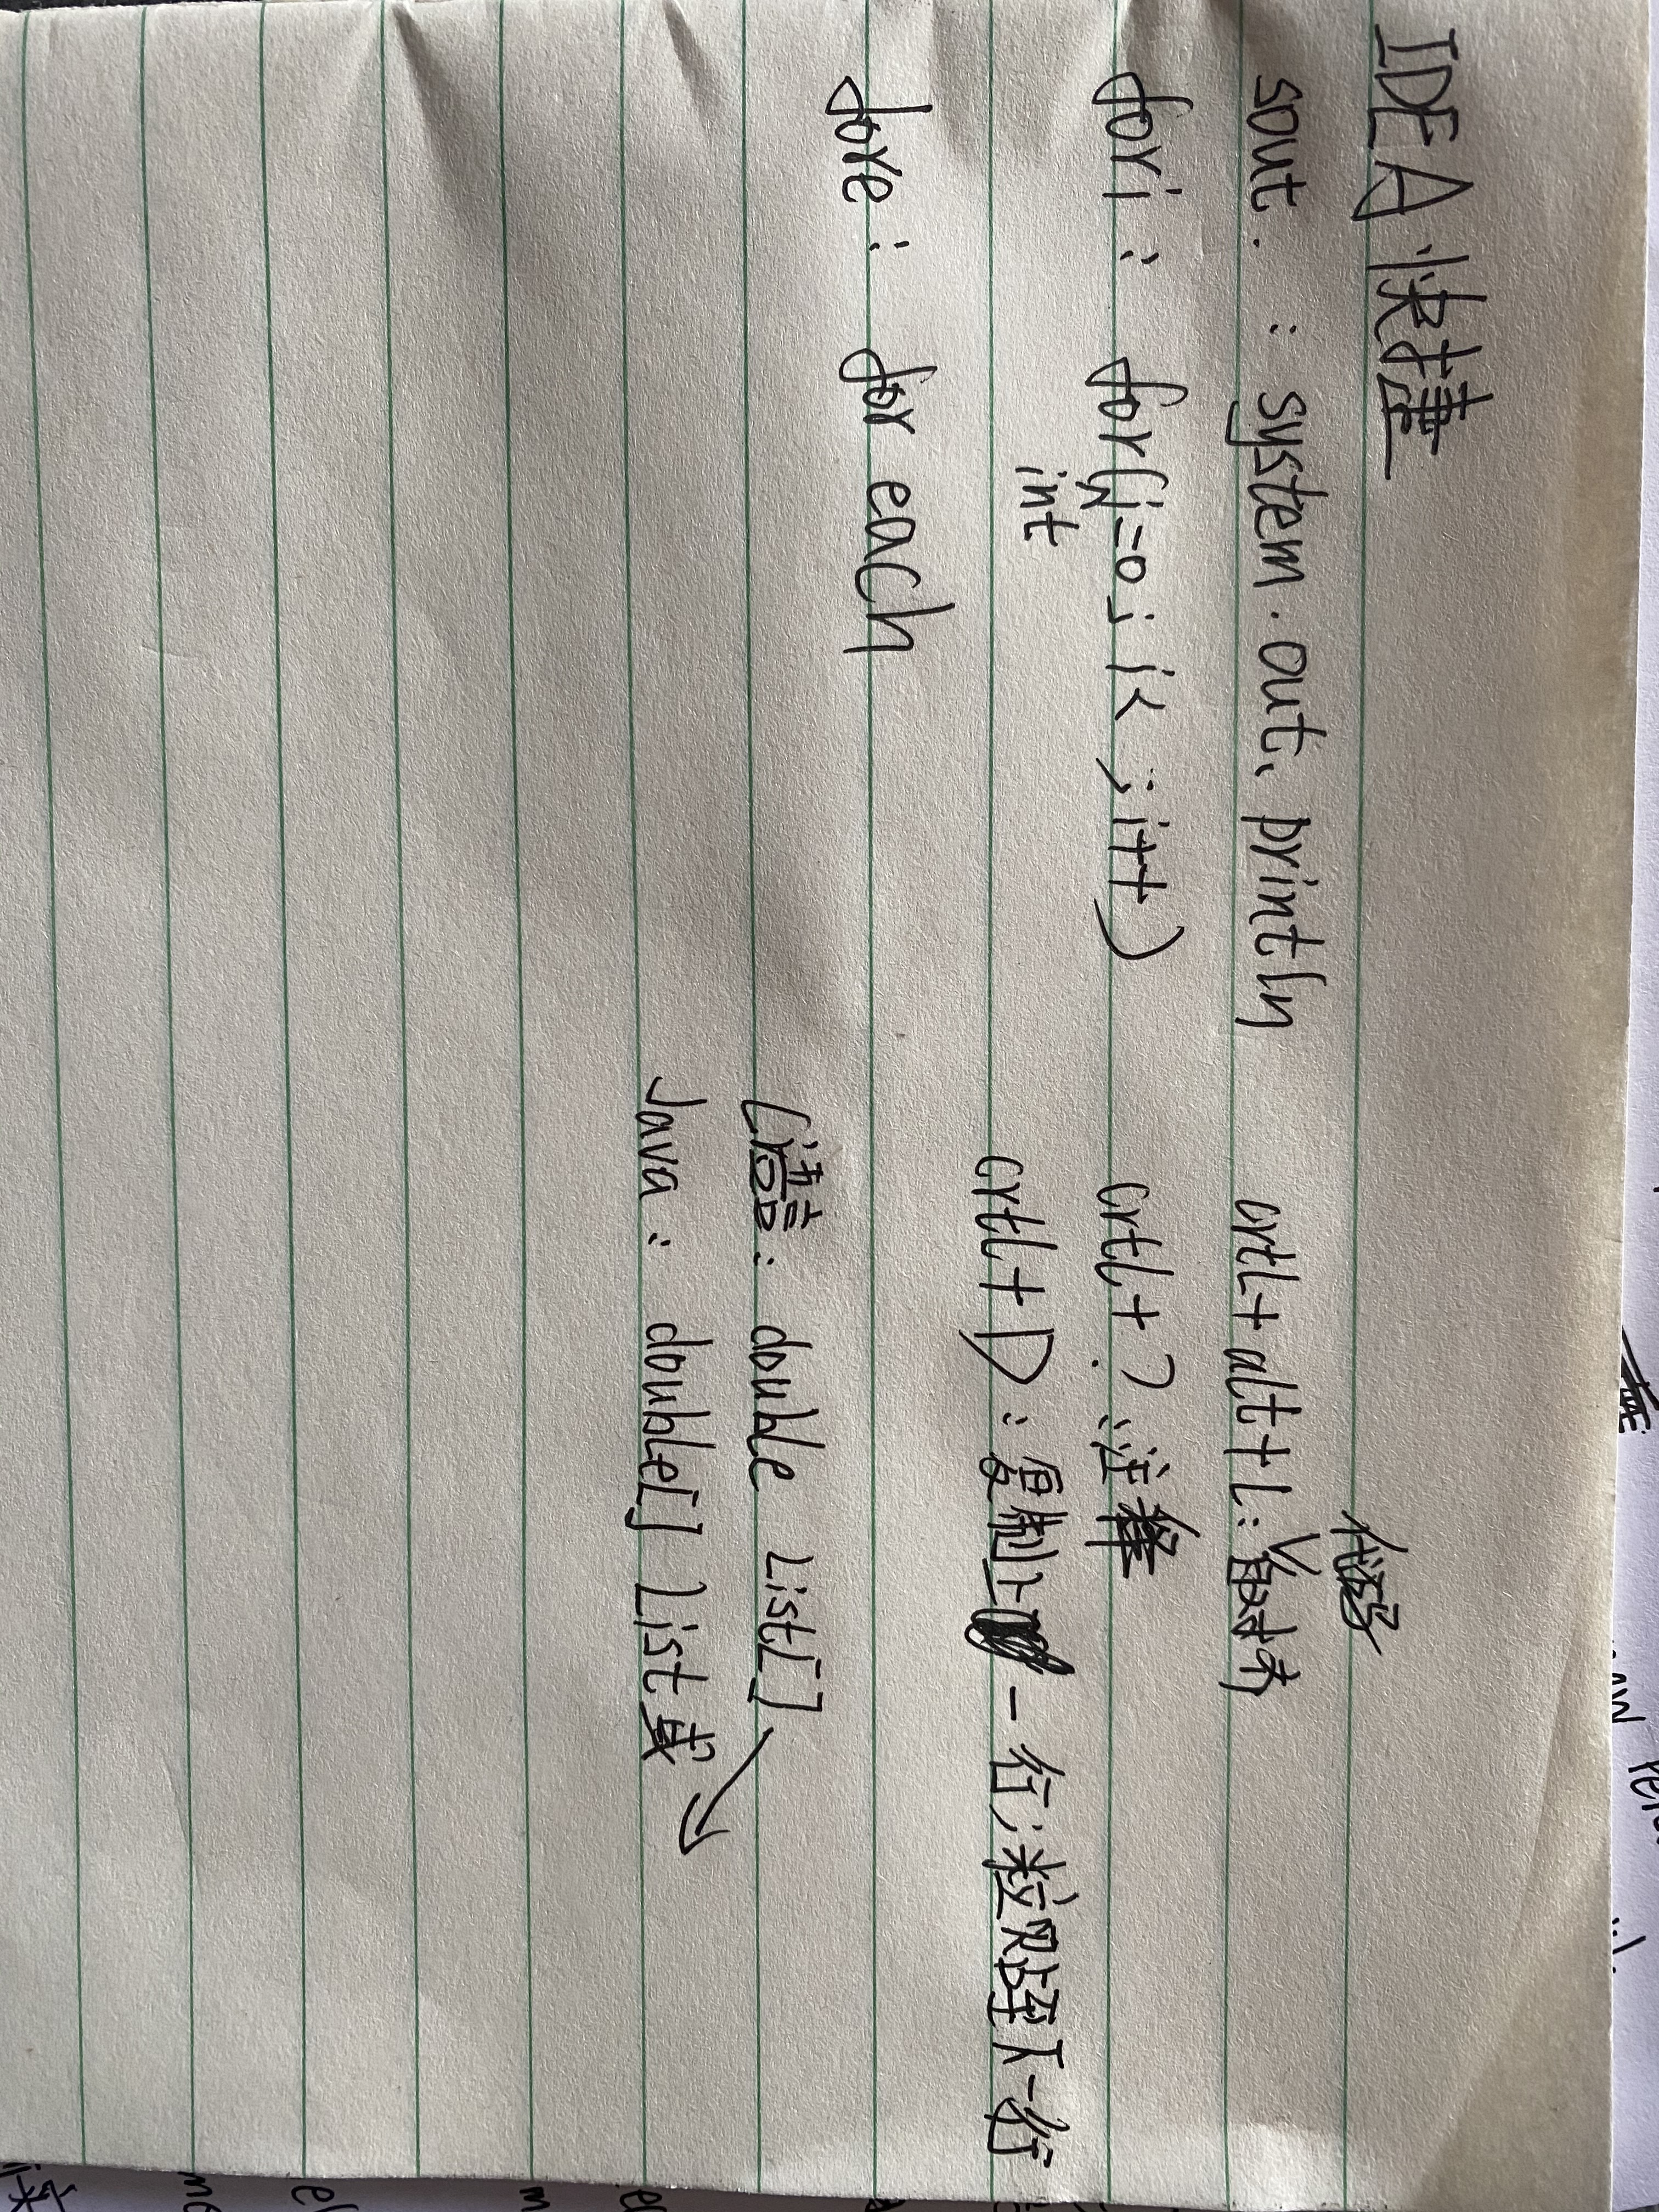 IDEA 快捷
sout. : system.out.println
crtl+alt+L:代码对齐
fori : for(int i=0; i< ; i++)
crtl+? :注释
crtl+D : 复制上一行,粘贴至下一行
fore : for each
C语言: double List[]
Java: double[] List或↘